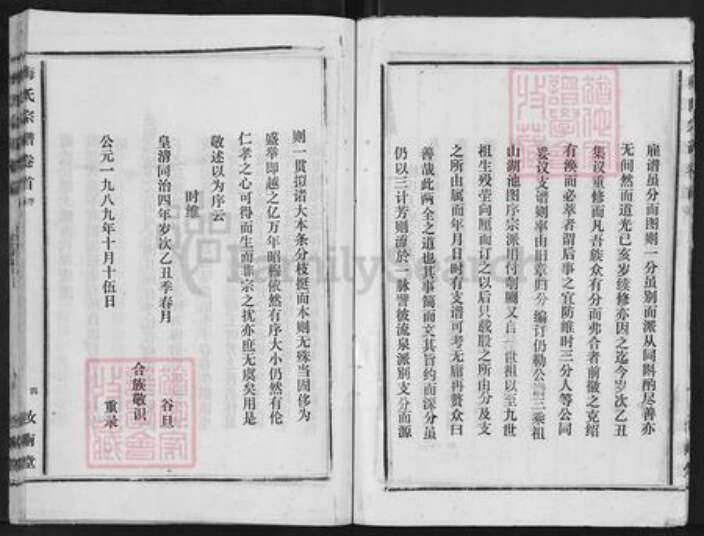 雁谱虽分而图则一分虽别而派从同斟酌尽善亦
无间然而道光己亥岁续修亦因之迄今岁次乙丑
集议重修而凡吾族众有分而弗合者前徽之克绍
有涣而必萃者谓后事之宜防维时三分人等公同
妥议支谱则率由旧章归分编订仍勒公谱三乘祖
山湖池图序宗派用付剞劂又自一世祖以至九世
祖生殁茔向厘而订之以后只载殷之所由分及支
之所由属而年月日时有支谱可考无庸再赘众曰
善哉此两全之道也其事简而文其旨约而深分虽
仍以三计芳则流於一脉譬彼流泉派别支分而源
则一贯拟诸大本条分枝挺而本则无殊当因侈为
盛举即越之亿万年昭穆依然有序大小仍然有伦
仁孝之心可得而生而渐宗之扰亦庶无虞矣用是
敬述以为序云
时维
皇清同治四年岁次乙丑季春月
谷旦
合族敬识
公元一九八九年十月十伍日
重录
梅氏宗谱卷首
四
FamilySearch